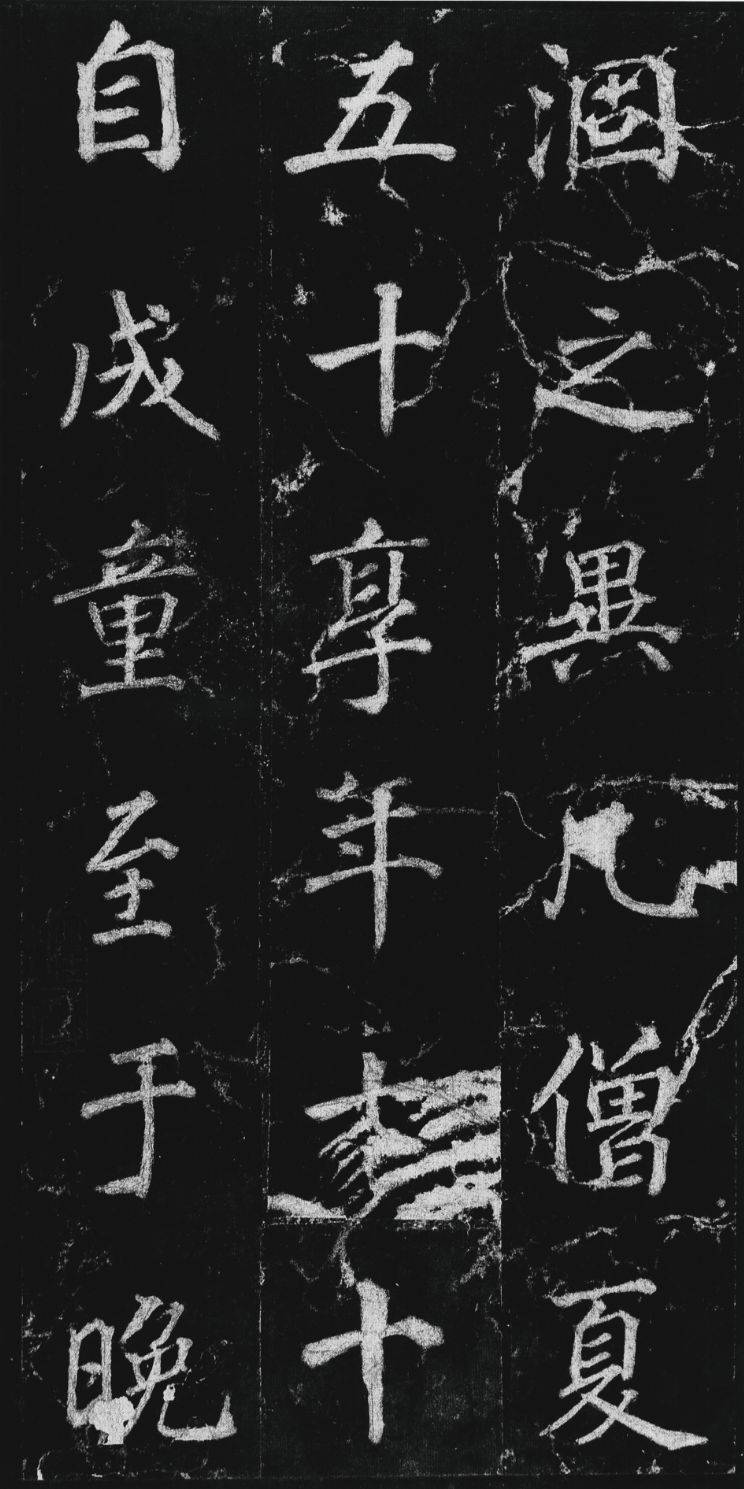 涸之異凡僧夏
五十享年七十
自成童至于晚